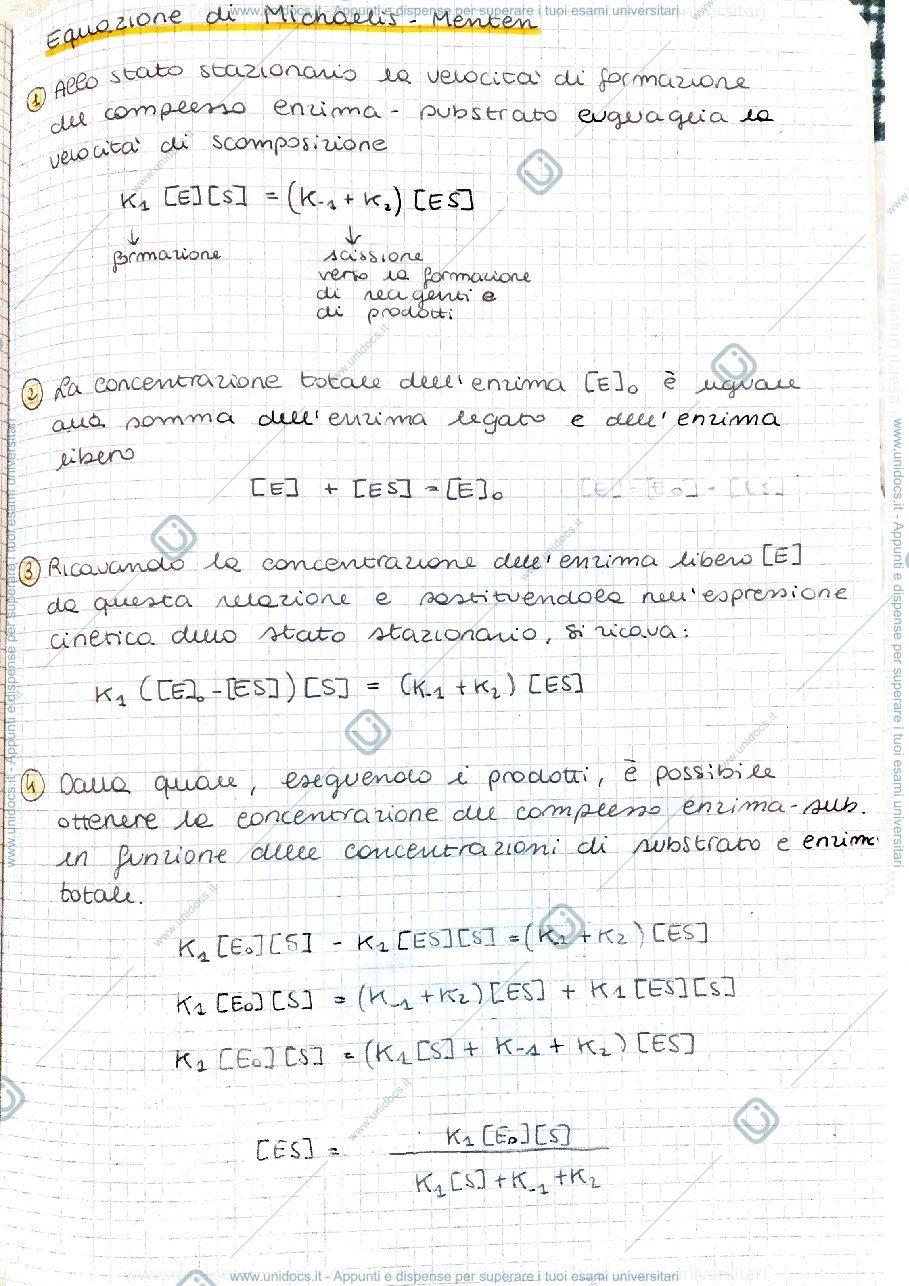 Equazione di Michaelis - Menten
① Allo stato stazionario la velocità di formazione
del complesso enzima - substrato euguaglia la
velocità di scomposizione
K₁ [E][S] = (K-₁ + K₂) [ES]
↓ ↓
formazione scissione
verso la formazione
di reagenti e
di prodotti
② La concentrazione totale dell'enzima [E]₀ è uguale
alla somma dell'enzima legato e dell'enzima
libero
[E] + [ES] = [E]₀ [E] = [E₀] - [ES]
③ Ricavando la concentrazione dell'enzima libero [E]
da questa relazione e sostituendola nell'espressione
cinetica dello stato stazionario, si ricava:
K₁ ([E]₀ - [ES]) [S] = (K-₁ + K₂) [ES]
④ Dalla quale, eseguendo i prodotti, è possibile
ottenere la concentrazione del complesso enzima-sub.
in funzione delle concentrazioni di substrato e enzima
totale.
K₁ [E₀][S] - K₁ [ES][S] = (K-₁ + K₂) [ES]
K₁ [E₀][S] = (K-₁ + K₂) [ES] + K₁ [ES][S]
K₁ [E₀][S] = (K₁ [S] + K-₁ + K₂) [ES]
[ES] = K₁ [E₀][S]
K₁ [S] + K-₁ + K₂
www.unidocs.it - Appunti e dispense per superare i tuoi esami universitari